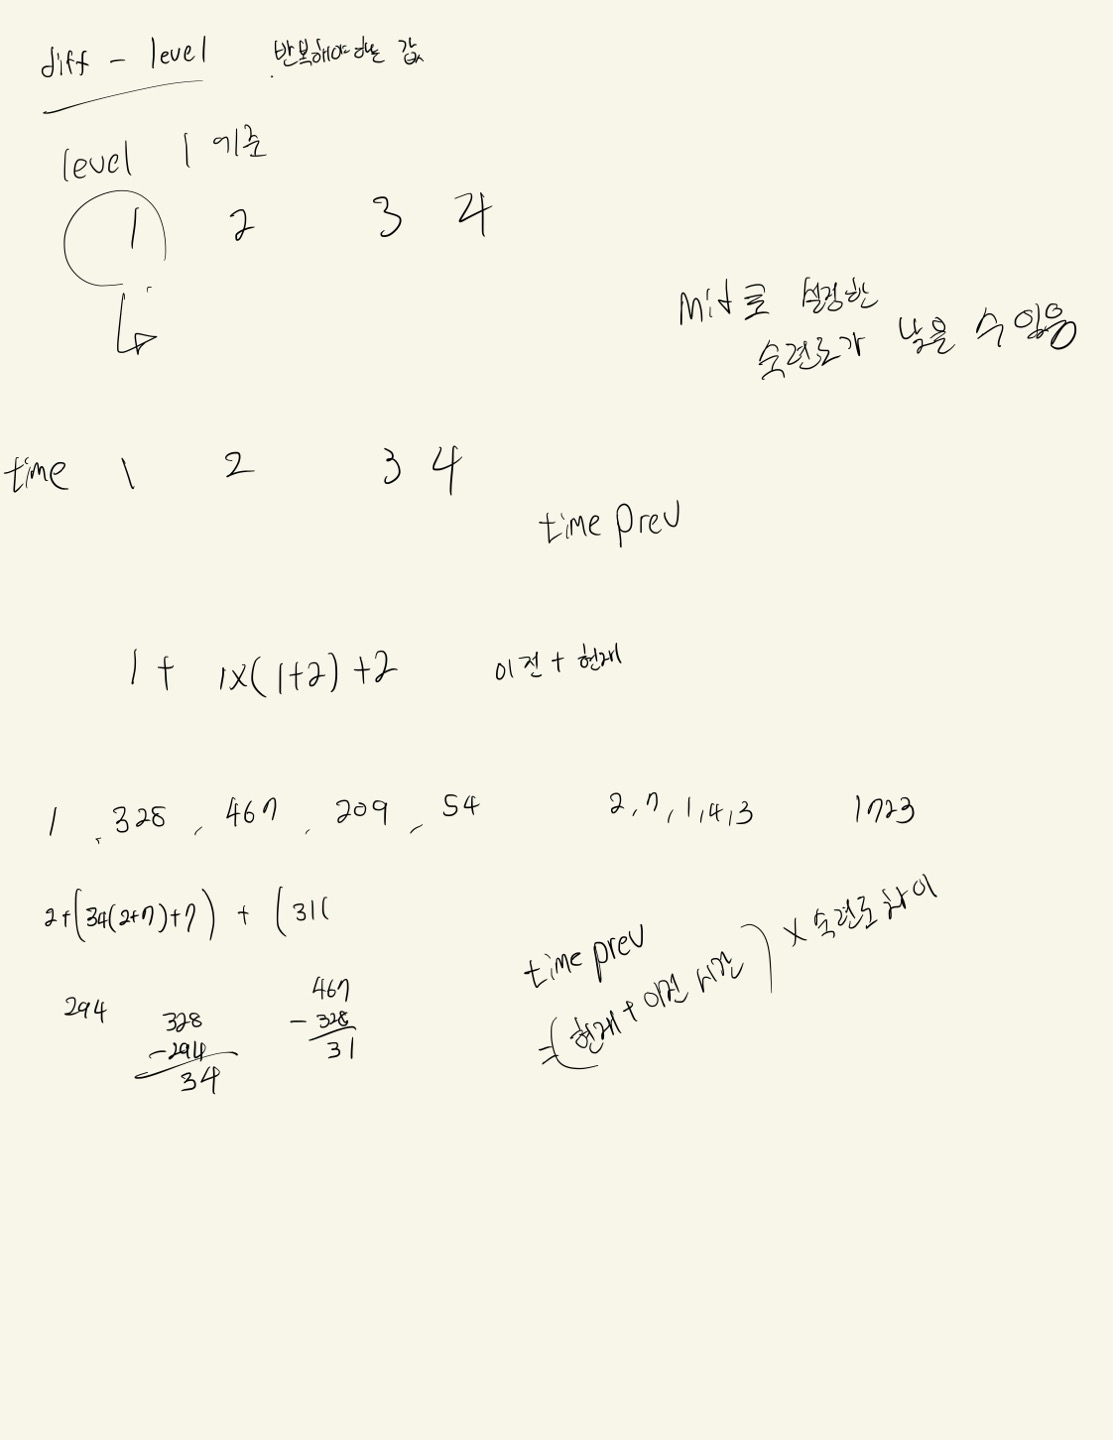 diff - level 반복해야하는 값
level 1 기준
1 2 3 4
Mid로 설정한
숙련도가 낮을 수 있음
time 1 2 3 4
time prev
1 + 1x(1+2)+2 이전 + 현재
1, 328, 467, 209, 54 2,7,1,4,3 1723
2+(34(2+7)+7) + (31(
time prev
=(현재+이전 시간) x 숙련도 차이
294
328
-294
34
467
- 328
31